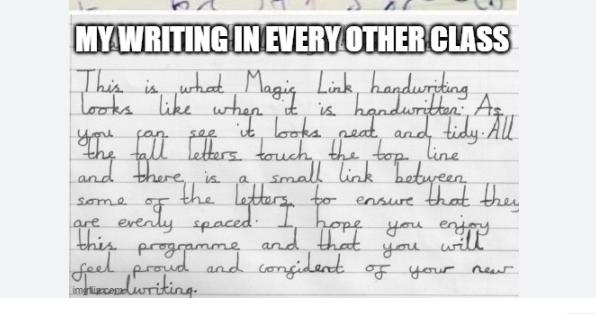 MY WRITING IN EVERY OTHER CLASS
This is what Magic Link handwriting
looks like when it is handwritten. As
you can see it looks neat and tidy. All
the tall letters touch the top line
and there is a small link between
some of the letters to ensure that they
are evenly spaced. I hope you enjoy
this programme and that you will
feel proud and confident of your new
handwriting.